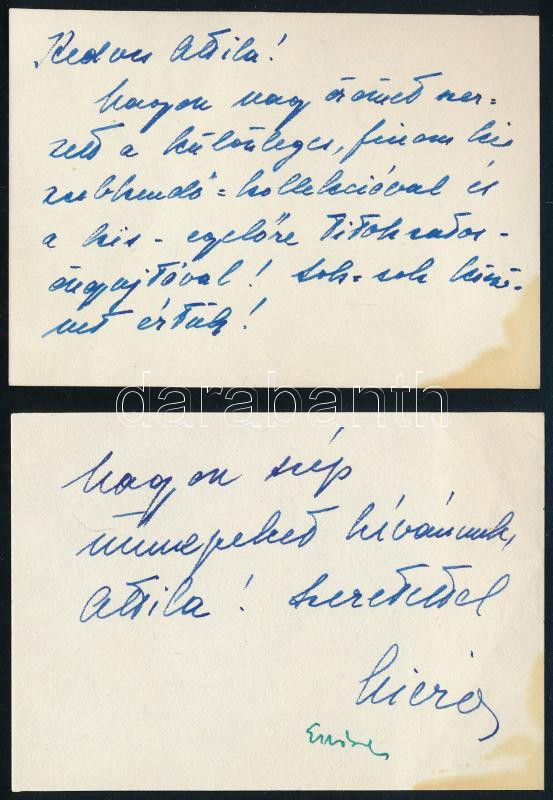 Kedves Attila!
Nagyon nagy örömet szer=
zett a különleges, finom kis
zsebkendő=kollekcióval és
a kis - egyelőre titokzatos -
öngyujtóval! Sok=sok köszö-
net értük!
darabanth
Nagyon szép
ünnepeket kívánunk,
Attila! Szeretettel